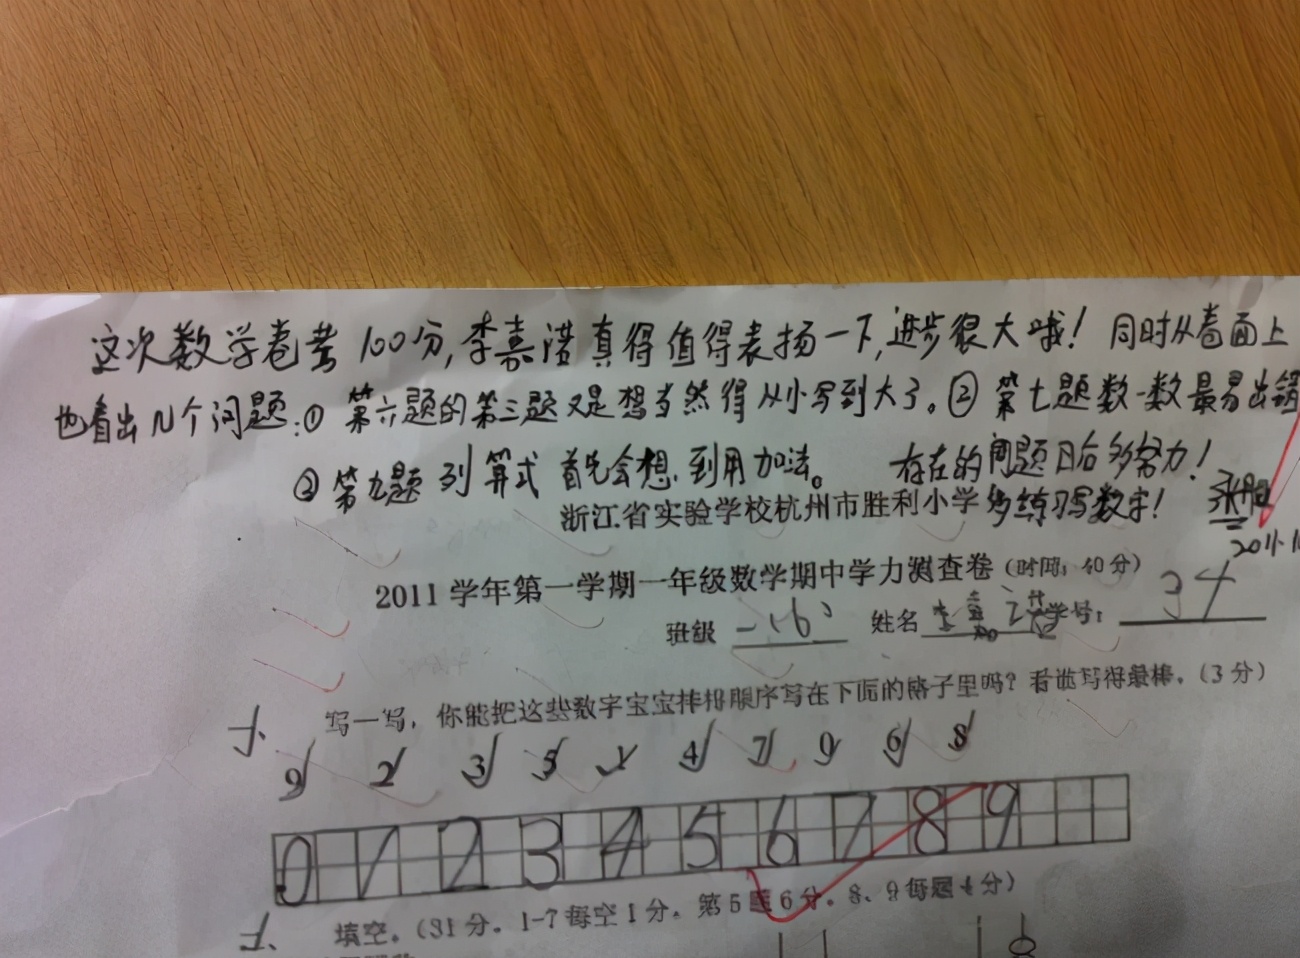 这次数学卷考100分,李嘉诺真得值得表扬一下,进步很大哦！同时从卷面上
也看出几个问题:① 第六题的第三题又是想当然得从小写到大了。② 第七题数一数最易出错
③ 第九题列算式首先会想到用加法。 存在的问题日后多努力！
浙江省实验学校杭州市胜利小学 多练习写数字！
2011·1
2011学年第一学期一年级数学期中学力测查卷（时间：40分）
班级 姓名 李嘉诺 学号： 34
一、 写一写，你能把这些数字宝宝排排顺序写在下面的格子里吗？看谁写得最棒。（3分）
9 2 3 5 1 4 7 0 6 8
0 1 2 3 4 5 6 7 8 9
二、 填空。（31分。1-7每空1分。第5题6分。8、9每题4分）